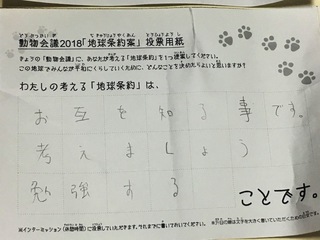 動物会議2018「地球条約案」投票用紙
きょうの「動物会議」に、あなたが考える「地球条約」を1つ提案してください。
この地球でみんなが平和にくらしていくために、どんなことを決めたらよいと思いますか?
わたしの考える「地球条約」は、
お互を知る事です。
考えましょう
勉強する
ことです。
※インターミッション(休憩時間)に投票していただきます。それまでに書いておいてください。